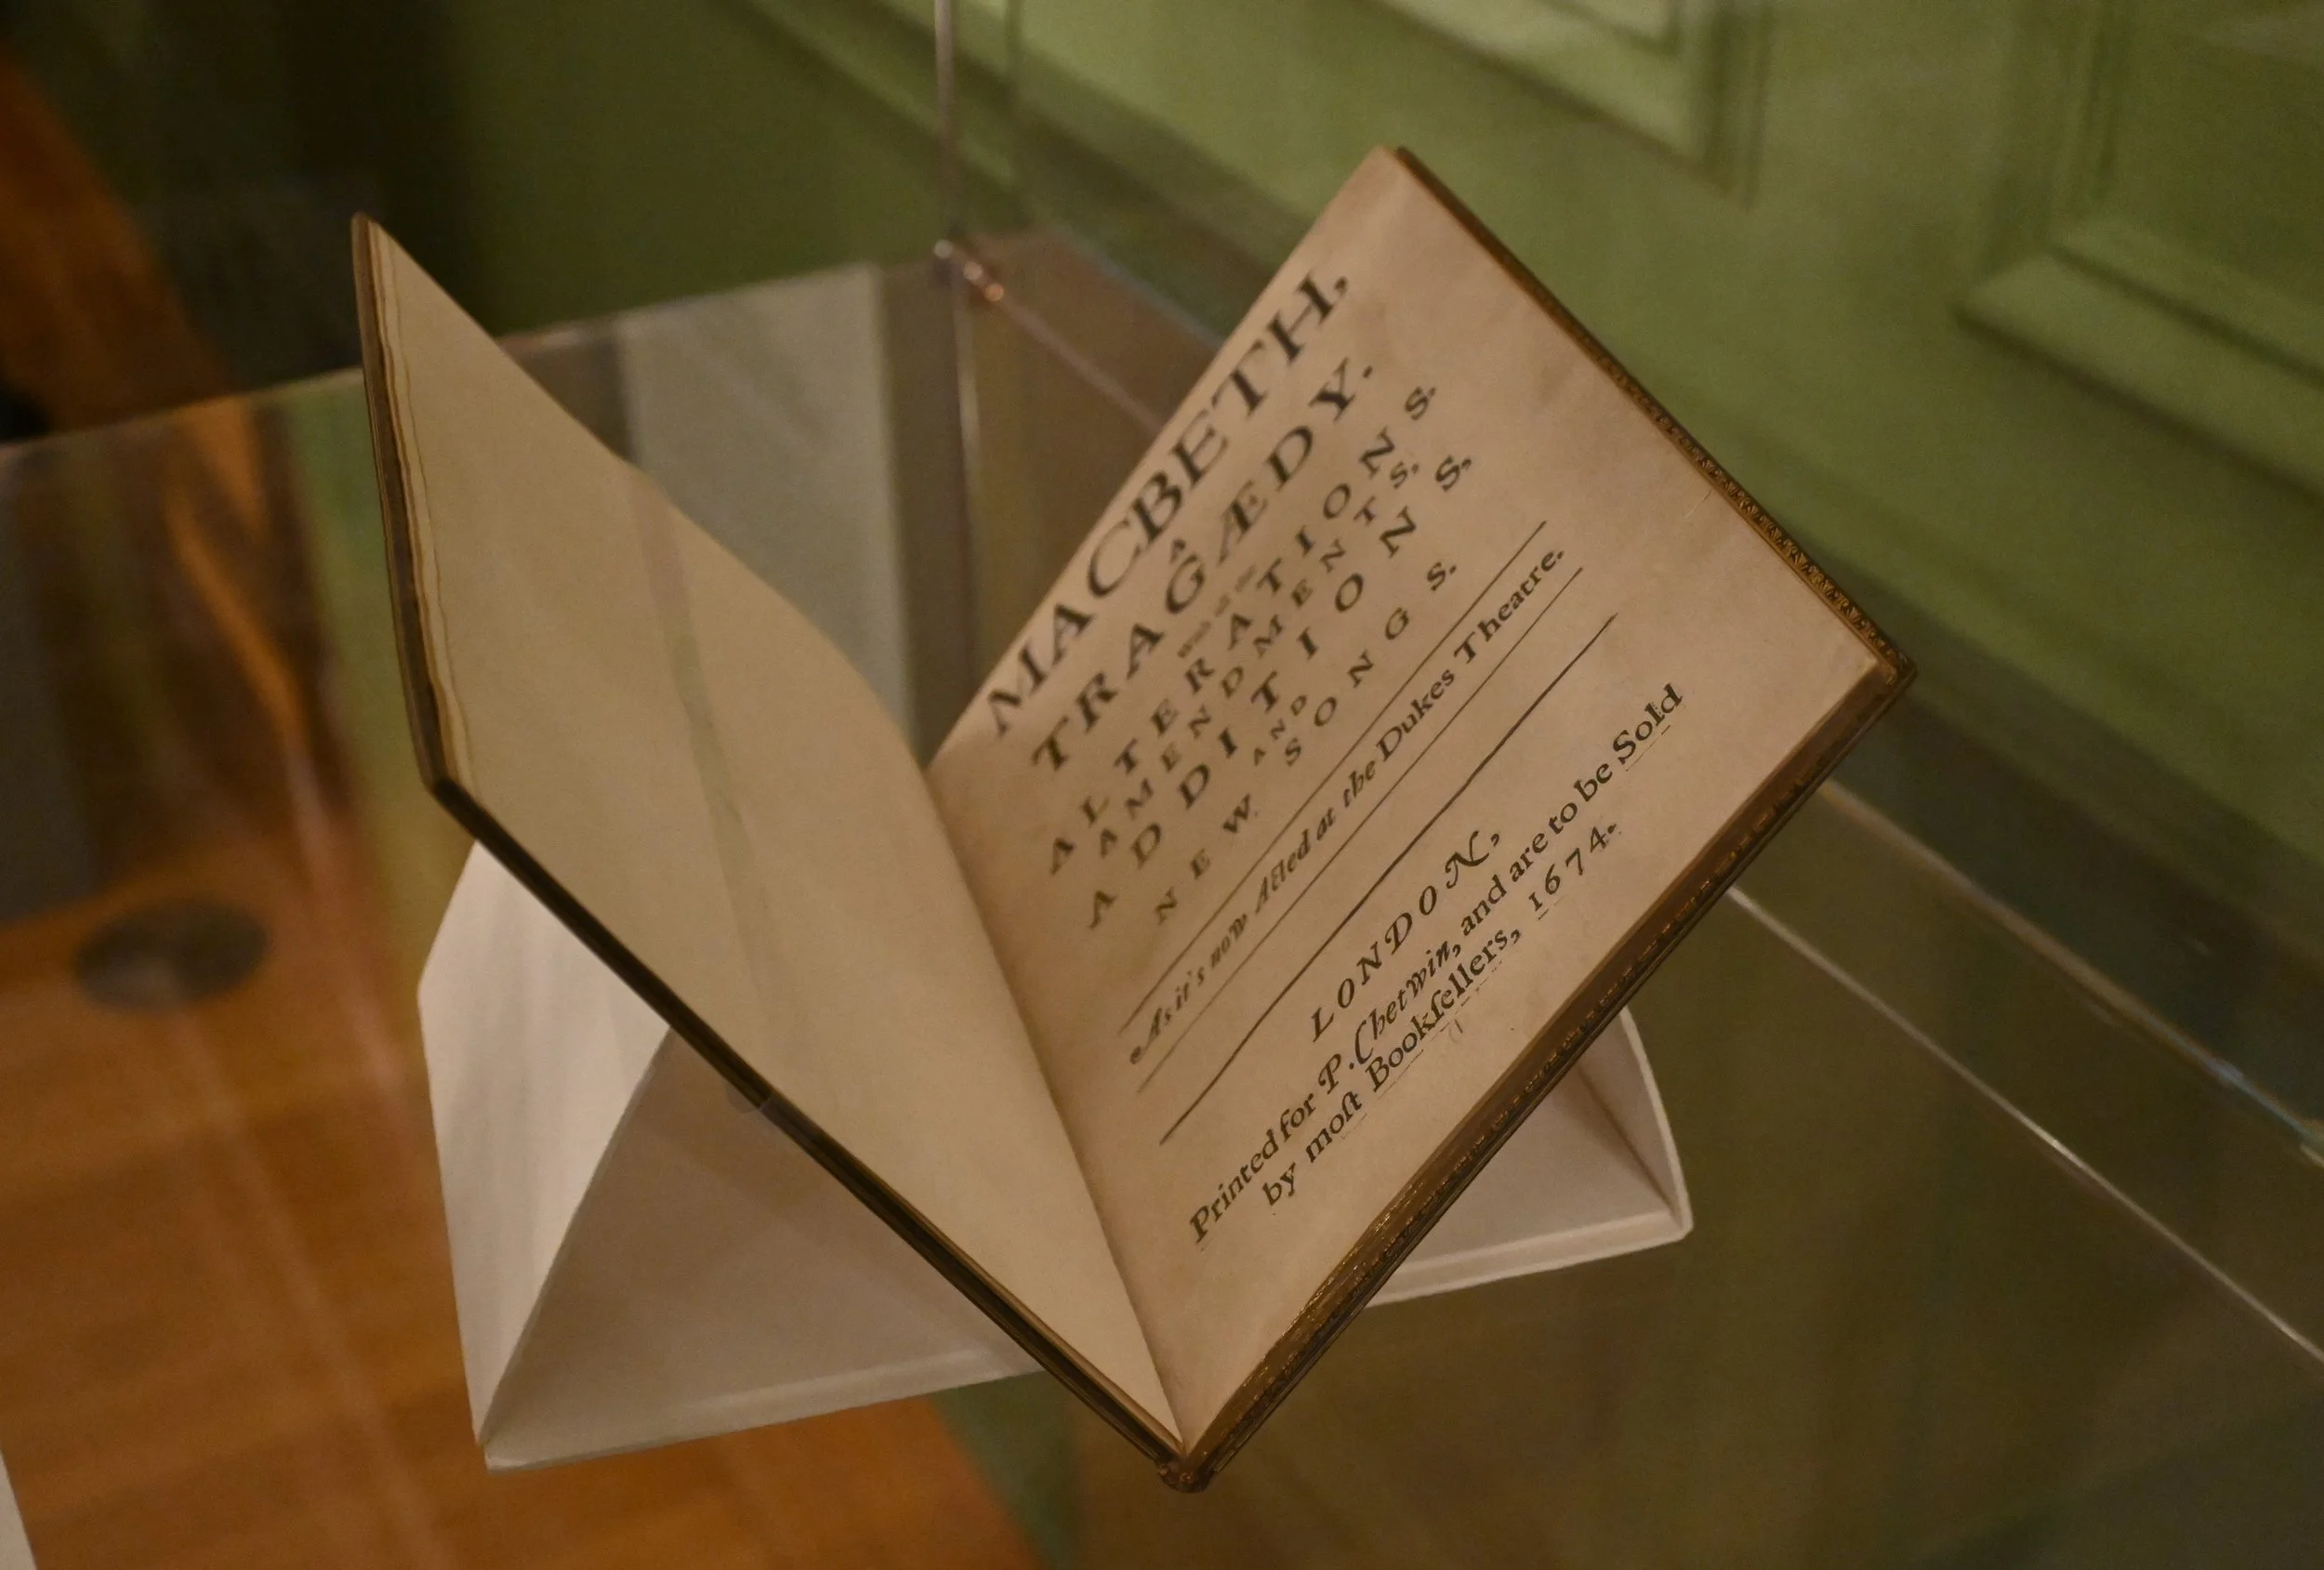 MACBETH,
A
TRAGÆDY.
With all the
ALTERATIONS.
AMENDMENTS.
ADDITIONS.
AND
NEW SONGS.
As it's now Acted at the Dukes Theatre.
LONDON,
Printed for P. Chetwin, and are to be Sold
by moſt Bookſellers, 1674.